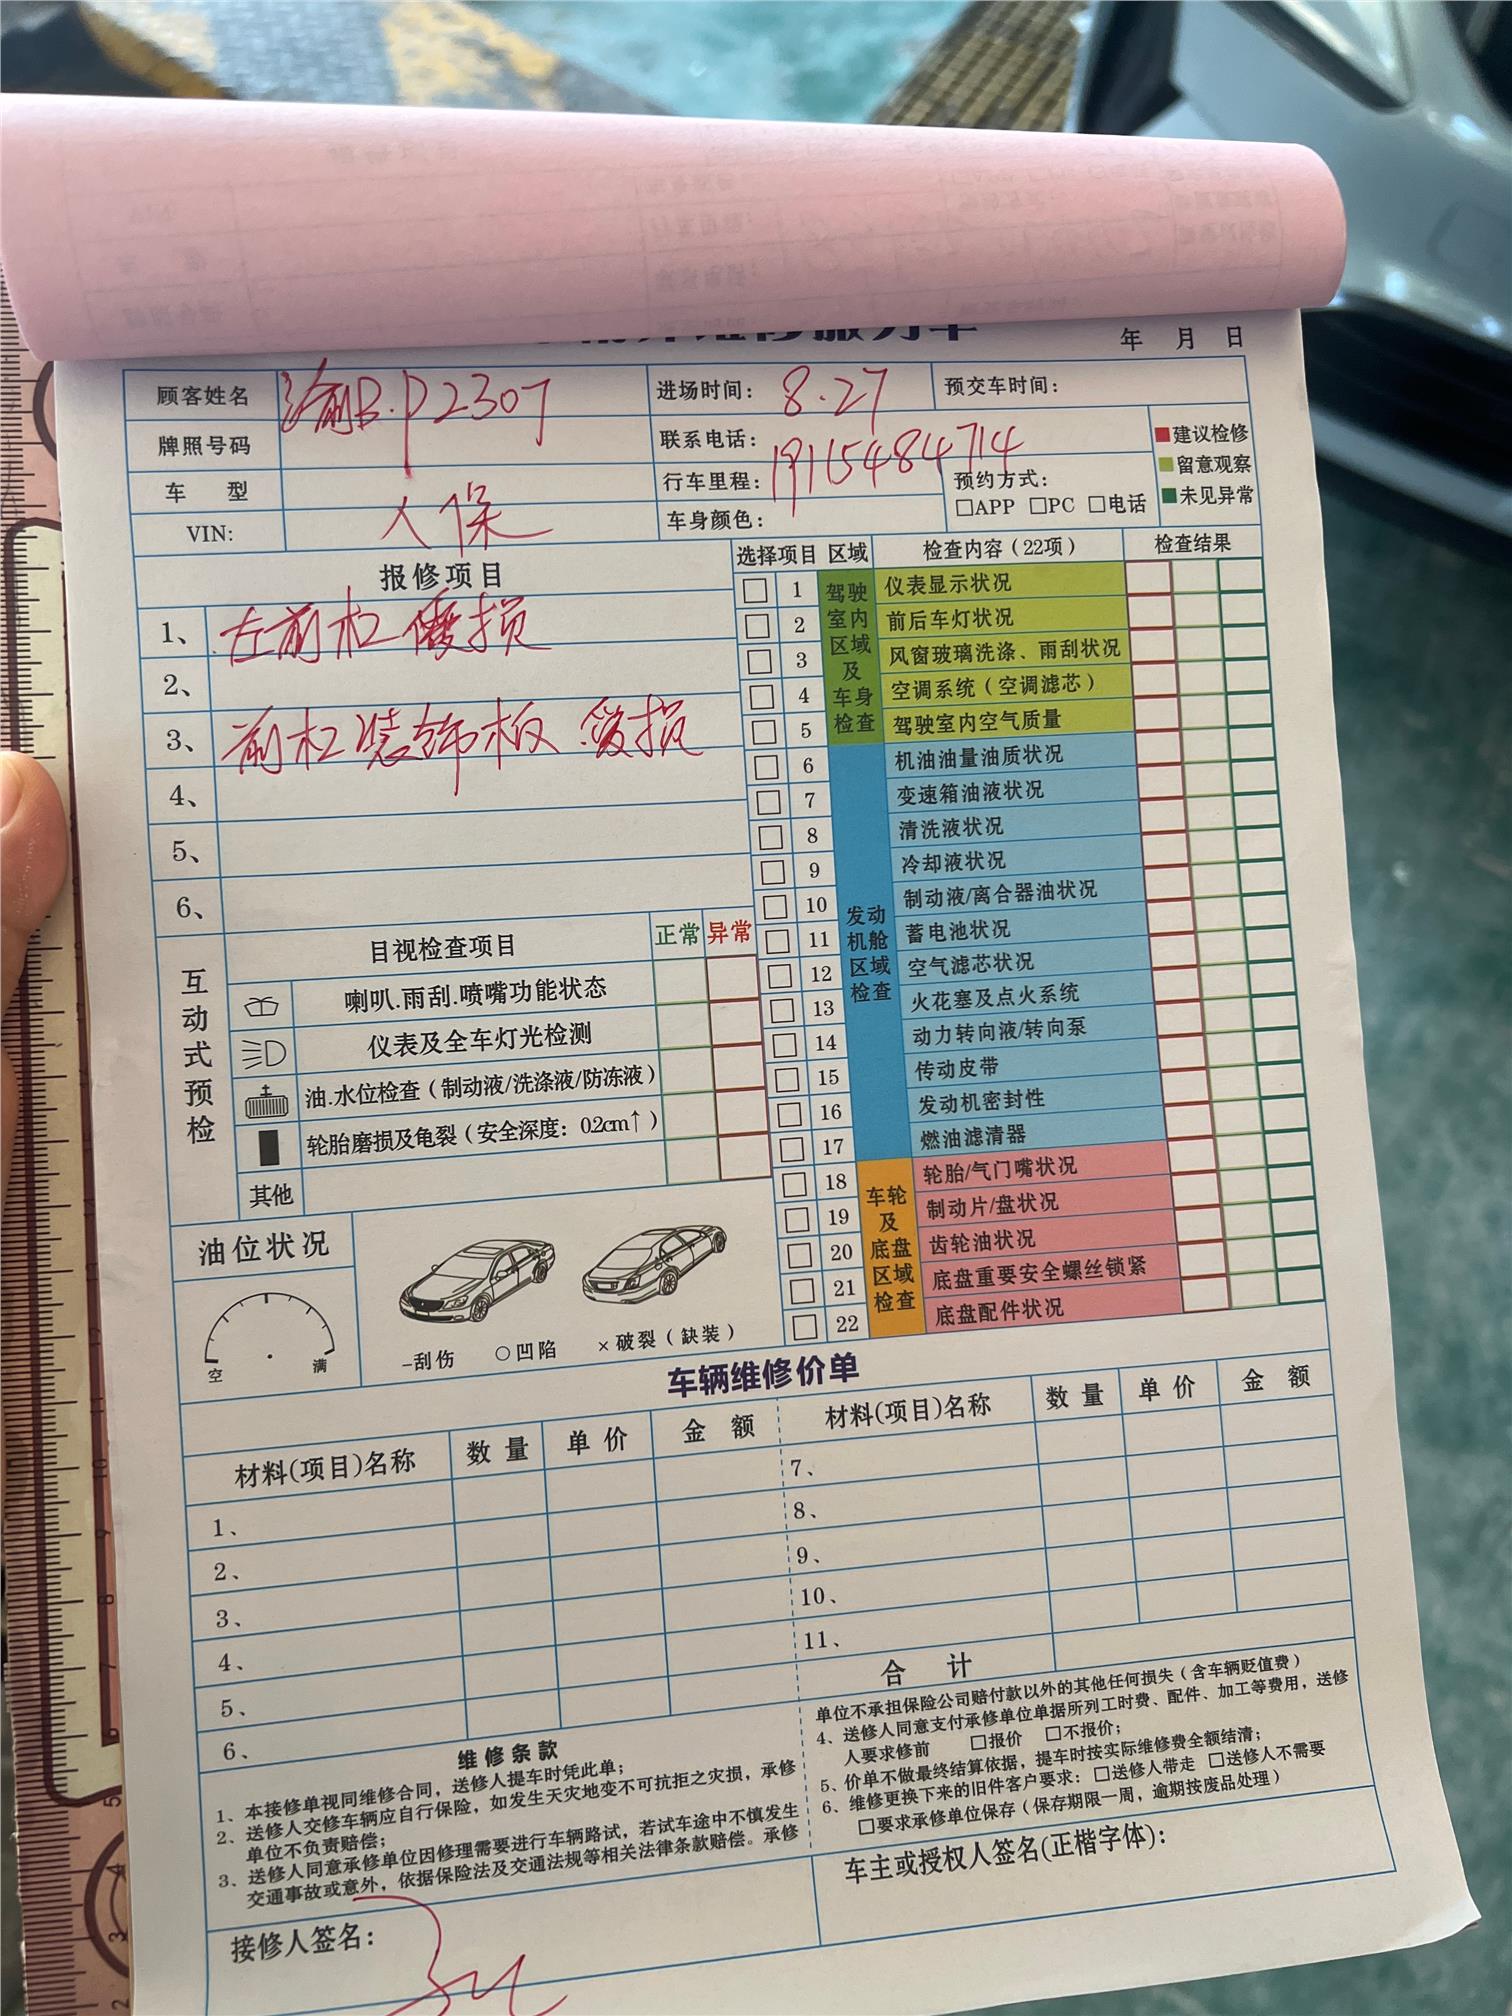 年 月 日
顾客姓名 渝B·P2307 进场时间: 8.27 预交车时间:
牌照号码 联系电话: 19115484714
车 型 行车里程: 预约方式:
□APP □PC □电话
VIN: 人保 车身颜色:
建议检修
留意观察
未见异常
报修项目
1、左前杠 损
2、
3、前杠装饰板 损
4、
5、
6、
选择项目 区域 检查内容(22项) 检查结果
驾驶室内区域及车身检查
1 仪表显示状况
2 前后车灯状况
3 风窗玻璃洗涤、雨刮状况
4 空调系统(空调滤芯)
5 驾驶室内空气质量
发动机舱区域检查
6 机油油量油质状况
7 变速箱油液状况
8 清洗液状况
9 冷却液状况
10 制动液/离合器油状况
11 蓄电池状况
12 空气滤芯状况
13 火花塞及点火系统
14 动力转向液/转向泵
15 传动皮带
16 发动机密封性
17 燃油滤清器
车轮及底盘区域检查
18 轮胎/气门嘴状况
19 制动片/盘状况
20 齿轮油状况
21 底盘重要安全螺丝锁紧
22 底盘配件状况
互动式预检
目视检查项目 正常 异常
喇叭.雨刮.喷嘴功能状态
仪表及全车灯光检测
油.水位检查(制动液/洗涤液/防冻液)
轮胎磨损及龟裂(安全深度: 0.2cm↑)
其他
油位状况
空 满
-刮伤 ○凹陷 ×破裂(缺装)
车辆维修价单
材料(项目)名称 数量 单价 金额 材料(项目)名称 数量 单价 金额
1、 7、
2、 8、
3、 9、
4、 10、
5、 11、
6、 合 计
维修条款
1、本接修单视同维修合同，送修人提车时凭此单；
2、送修人交修车辆应自行保险，如发生天灾地变不可抗拒之灾损，承修
单位不负责赔偿；
3、送修人同意承修单位因修理需要进行车辆路试，若试车途中不慎发生
交通事故或意外，依据保险法及交通法规等相关法律条款赔偿。承修
单位不承担保险公司赔付款以外的其他任何损失(含车辆贬值费)
4、送修人同意支付承修单位单据所列工时费、配件、加工等费用，送修
人要求修前 □报价 □不报价；
5、价单不做最终结算依据，提车时按实际维修费全额结清；
6、维修更换下来的旧件客户要求：□送修人带走 □送修人不需要
□要求承修单位保存(保存期限一周，逾期按废品处理)
接修人签名:
车主或授权人签名(正楷字体):